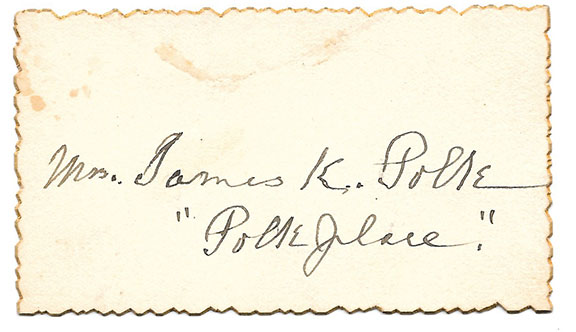 Mrs. James K. Polk
"Polk Place".